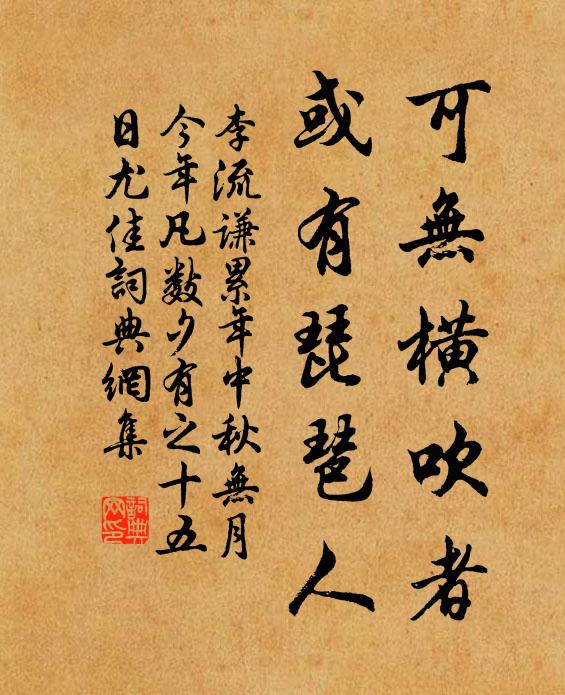 可無橫吹者
或有琵琶人
李流謙累年中秋無月
今年凡數夕有之十五
日尤佳詞典網集
詞典
网印